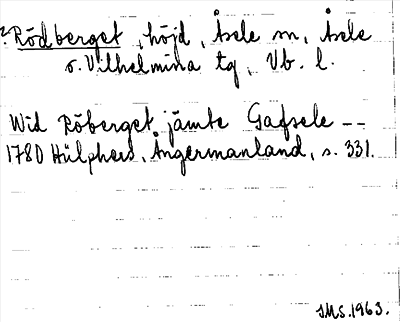 ? Rödberget, höjd, Åsele sn, Åsele
o. Vilhelmina tg, Vb. l.
Wid Röberget jämte Gafsele --
1780 Hülphers, Ångermanland, s. 331.
JMS. 1963.